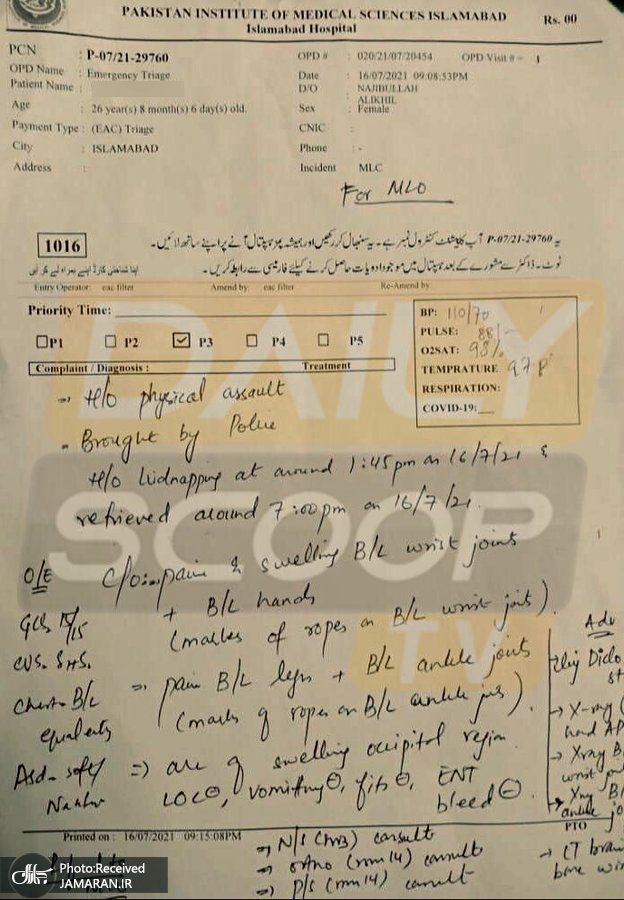 PAKISTAN INSTITUTE OF MEDICAL SCIENCES ISLAMABAD
Islamabad Hospital
Rs. 00
PCN : P-07/21-29760 OPD # : 020/21/07/20454 OPD Visit # = 1
OPD Name : Emergency Triage Date : 16/07/2021 09:08:53PM
Patient Name : D/O NAJIBULLAH ALIKHIL
Age : 26 year(s) 8 month(s) 6 day(s) old. Sex : Female
Payment Type : (EAC) Triage CNIC :
City : ISLAMABAD Phone : -
Address : Incident MLC
For MLO
1016
یہ P-07/21-29760 آپ کا پیشنٹ کنٹرول نمبر ہے۔ یہ سنبھال کر رکھیں اور ہمیشہ پمز ہسپتال آنے پر اپنے ساتھ لائیں۔
نوٹ۔ ڈاکٹر سے مشورے کے بعد ہسپتال میں موجود ادویات حاصل کرنے کیلئے فارمیسی سے رابطہ کریں۔
اپنا شناختی کارڈ اپنے ہمراہ لے کر آئیں
Entry Operator: eac filter Amend by: eac filter Re-Amend by:
Priority Time:
P1 P2 P3 P4 P5
Complaint / Diagnosis : Treatment
BP: 110/70
PULSE: 88/-
O2SAT: 98%
TEMPRATURE 97 F
RESPIRATION:
COVID-19:
DAILY
SCOOP
TV
→ H/o physical assault
- Brought by Police
H/o kidnapping at around 1:45pm on 16/7/21 &
retrieved around 7:00pm on 16/7/21.
O/E C/o:- pain & swelling B/L wrist joints
+ B/L hands
GCS 15/15 (marks of ropes on B/L wrist joints).
CVS. S1+S2.
⇒ pain B/L legs + B/L ankle joints
Chest- B/L
equal (marks of ropes on B/L ankle jts).
Abd- soft ⇒ are of swelling occipital region
LOC⊖, vomitting⊖, fits⊖, ENT
bleed⊖
Adv
Inj Diclo
st
→ X-ray
hand AP
→ Xray B/
wrist jo
→ Xray B/
ankle jo
PTO
→ CT brain
bone win
Printed on : 16/07/2021 09:15:08PM
⇒ N/S consult
⇒ ortho (rm 14) consult
⇒ P/S (rm 14) consult
Photo:Received
JAMARAN.IR